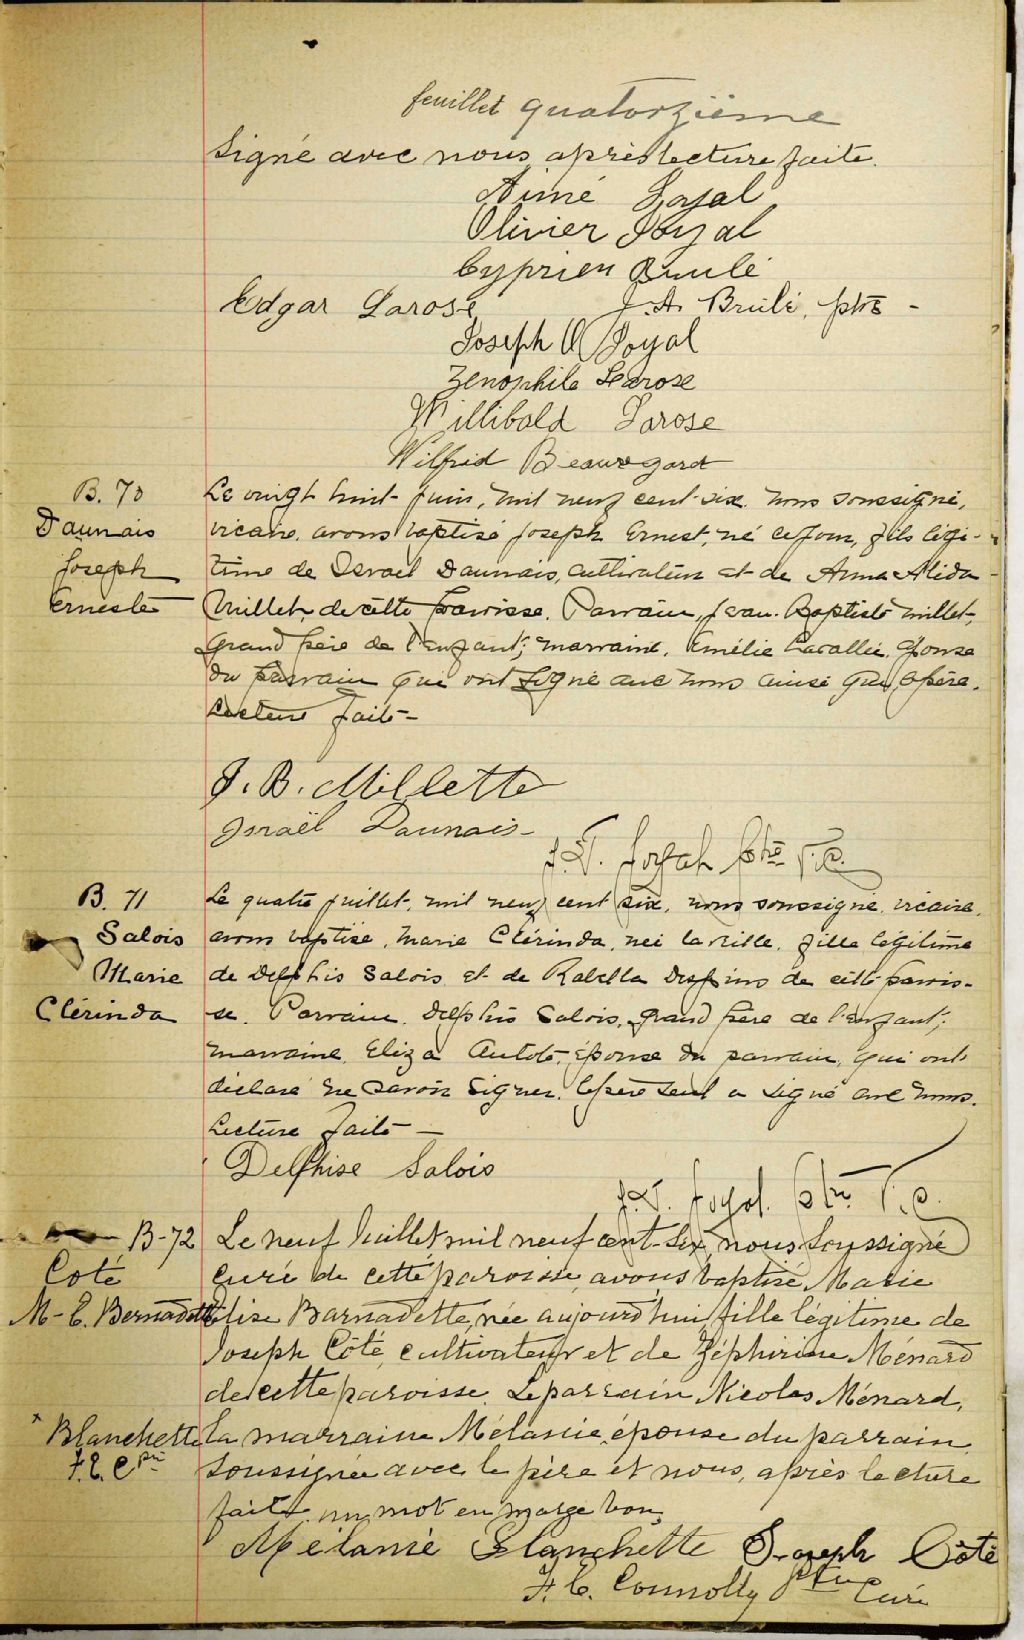 feuillet quatorzième
Signé avec nous, après lecture faite.
Aimé Joyal
Olivier Joyal
Cyprien Brulé
Edgar Larose J. A. Brûlé, ptre -
Joseph O Joyal
Zénophile Larose
Willibald Larose
Wilfrid Beauregard
B. 70
Daunais
Joseph
Ernest
Le vingt huit juin, mil neuf cent-six nous soussigné,
vicaire, avons baptisé Joseph Ernest, né ce jour, fils légi-
time de Israel Daunais, cultivateur et de Anna Alida
Millet, de cette paroisse. Parrain, Jean-Baptiste Millet,
grand père de l'enfant; marraine, Emélie Lavallée, épouse
du parrain qui ont signé avec nous ainsi que le père.
Lecture faite -
J. B. Millette
Israël Daunais -
J. T. Joyal ptre V. C.
B. 71
Salois
Marie
Clérinda
Le quatre juillet, mil neuf cent six, nous soussigné, vicaire,
avons baptisé, Marie Clérinda, née la veille, fille légitime
de Delphis Salois et de Rabella Despins de cette parois-
se. Parrain, Delphis Salois, grand père de l'enfant;
marraine, Eliza Autote, épouse du parrain, qui ont
déclaré ne savoir signer, le père seul a signé avec nous.
Lecture faite -
Delphise Salois
J. T. Joyal. ptre V. C.
B-72
Coté
M-E. Bernadette
Le neuf Juillet mil neuf cent-six, nous soussigné
curé de cette paroisse, avons baptisé Marie
Elise Barnadette, née aujourd'hui, fille légitime de
Joseph Côté, cultivateur et de Zéphirine Ménard
de cette paroisse. Le parrain Nicolas Ménard,
x Blanchette
F. E. C ptre
la marraine Mélanie x épouse du parrain,
soussignée avec le père et nous, après lecture
faite. un mot en marge bon.
Mélanie Blanchette Joseph Côté
F. E. Connolly Ptre Curé